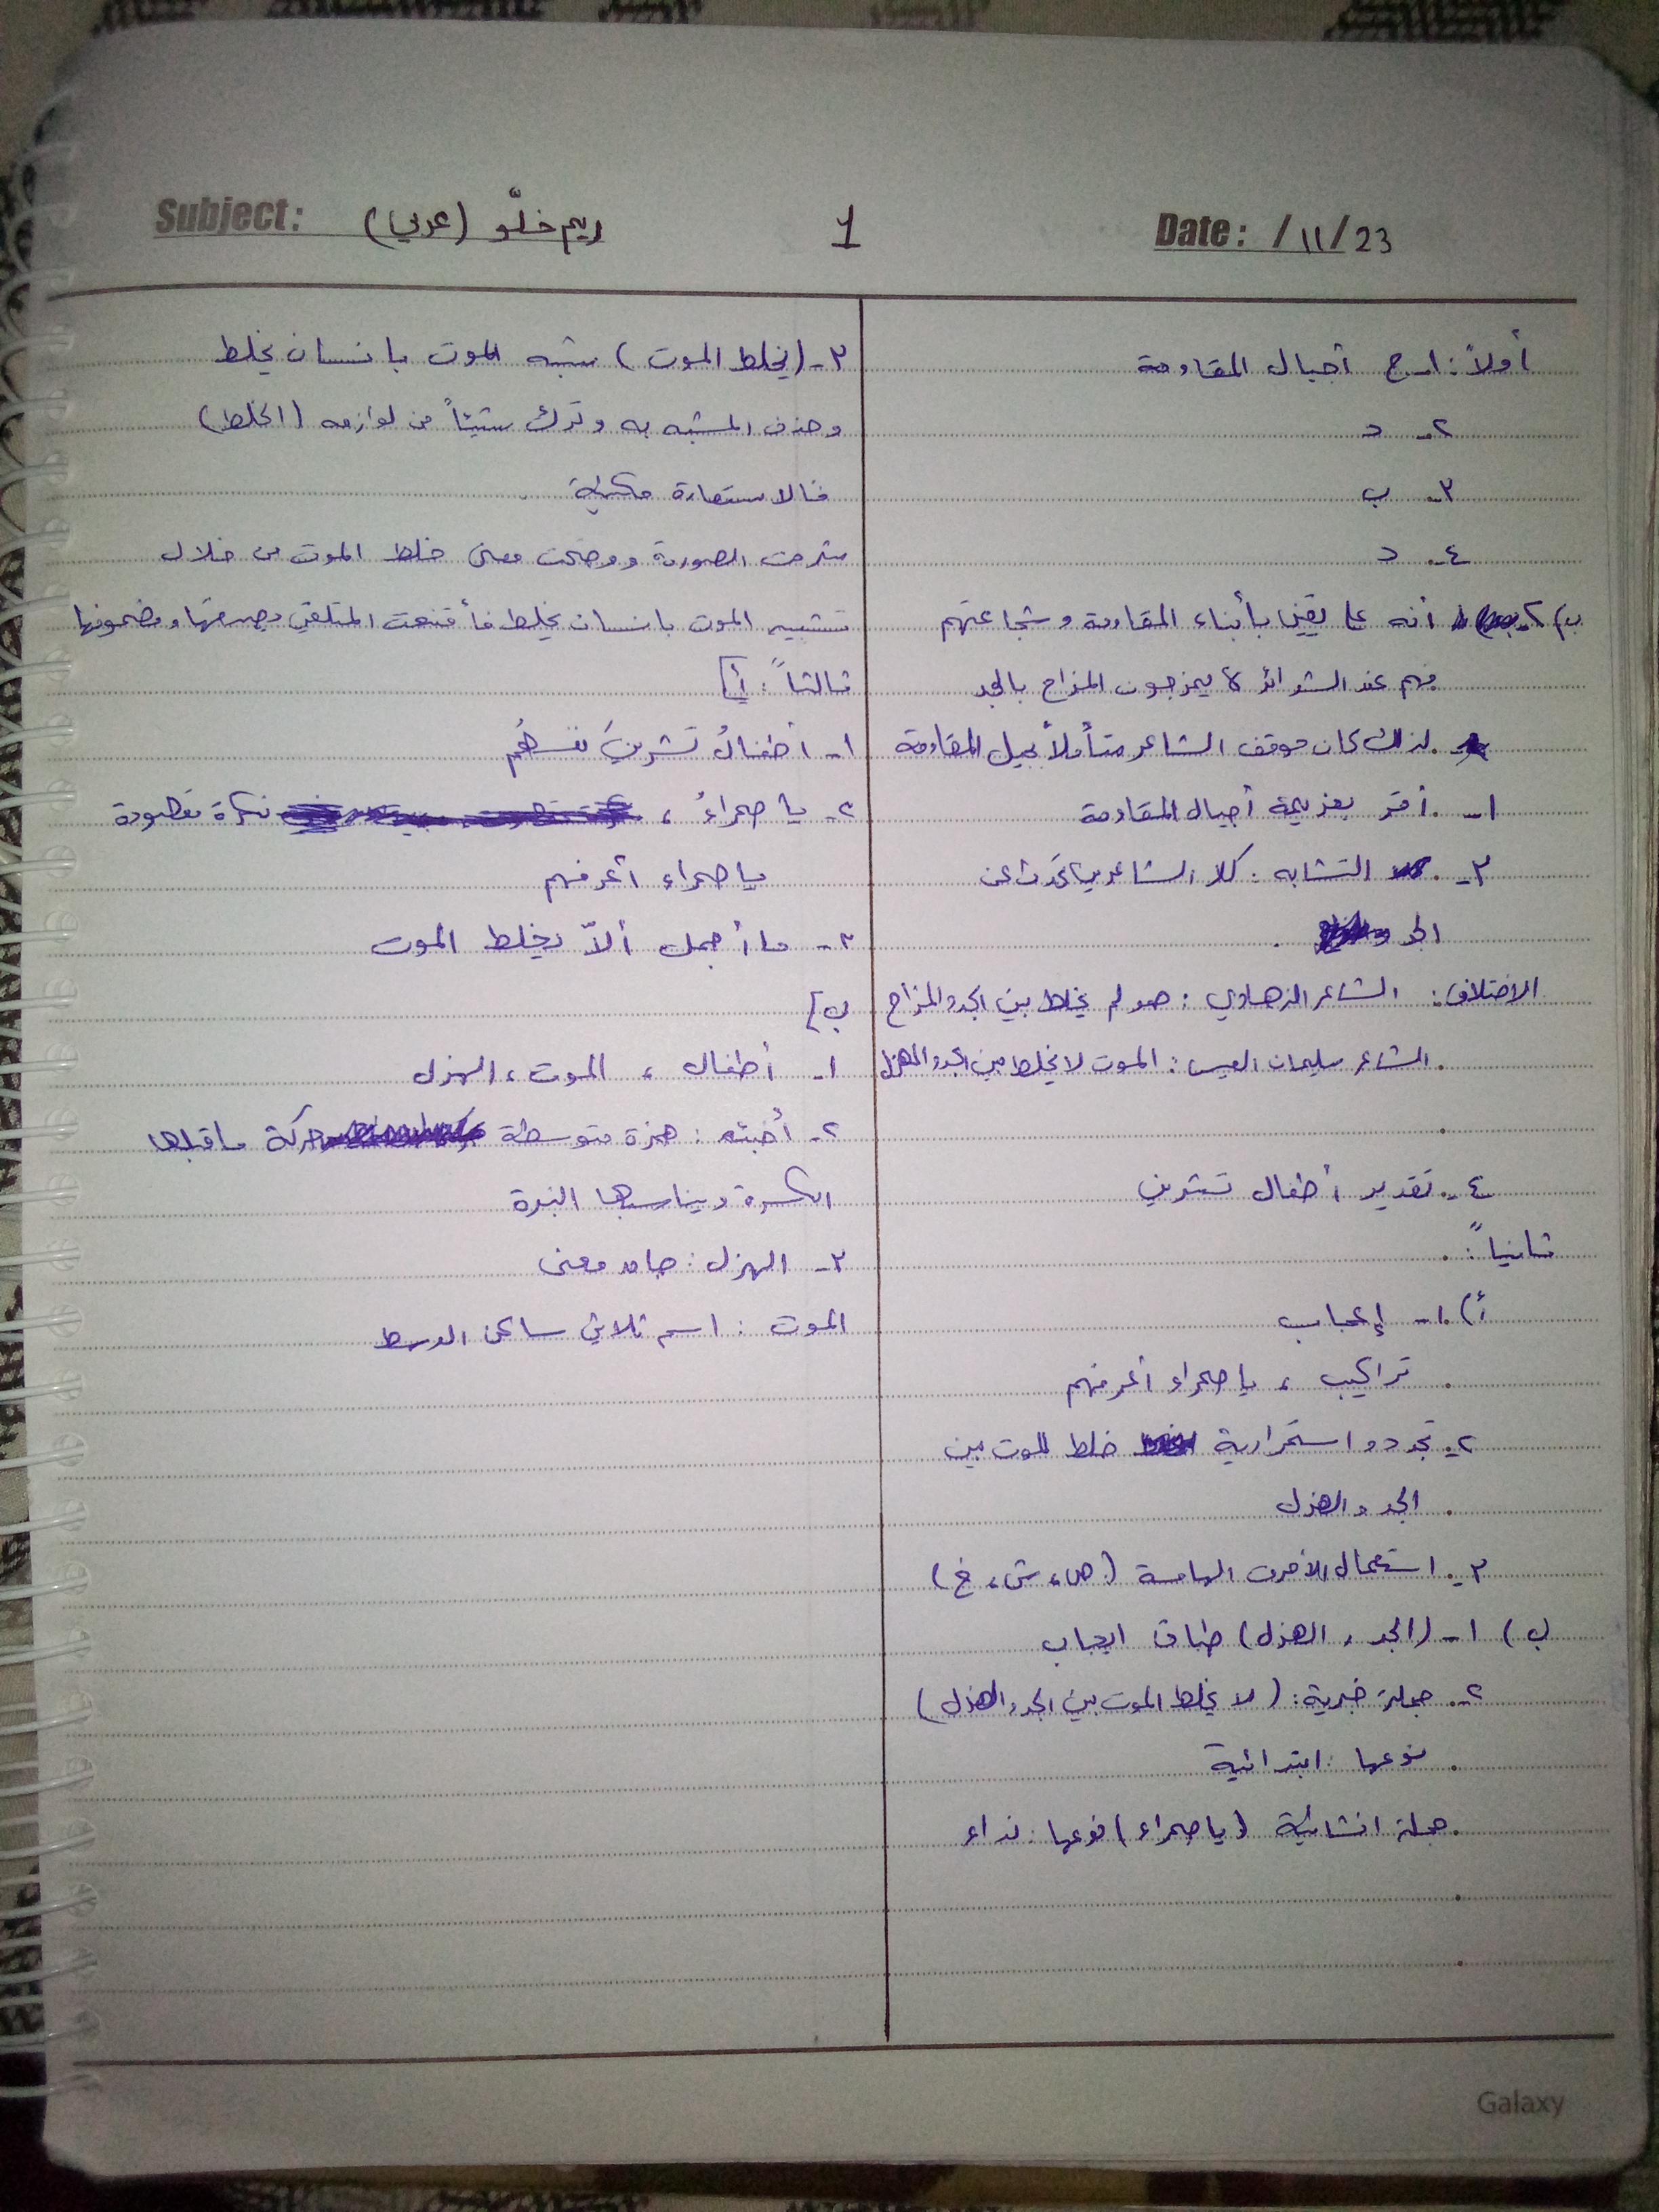 Subject: ريم خلّو (عربي)
1
Date: / 11 / 23
أولاً: ١- ج أجيال المقاومة
٢- د
٣- ب
٤- د
ب) ٢- أنه على يقين بأبناء المقاومة وشجاعتهم
فهم عند الشدائد لا يمزجون المزاح بالجد
لذلك كان موقف الشاعر متأملاً بجيل المقاومة
١- أقر بعزيمة أجيال المقاومة
٣- التشابه: كلا الشاعرين تحدث عن
الجد
الاختلاف: الشاعر الزهاوي: هو لم يخلط بين الجد والمزاح
الشاعر سليمان العيسى: الموت لا يخلط بين الجد والهزل
٤- تقدير أطفال تشرين
ثانياً:
أ) ١- إعجاب
تراكيب، يا صحراء أعرفهم
٢- تجدد واستمرارية خلط الموت بين
الجد والهزل
٣- استعمال الأحرف الهامسة (ص، ش، خ)
ب) ١- (الجد، الهزل) طباق ايجاب
٢- جملة خبرية: (لا يخلط الموت بين الجد والهزل)
نوعها: ابتدائية
جملة انشائية (يا صحراء) نوعها: نداء
٣- (يخلط الموت) شبه الموت بانسان يخلط
وحذف المشبه به وترك شيئاً من لوازمه (الخلط)
فالاستعارة مكنية
شرحت الصورة ووضحت معنى خلط الموت من خلال
تشبيه الموت بانسان يخلط فأقنعت المتلقي بصدقها ومضمونها
ثالثاً: أ]
١- أطفالُ تشرينَ نفسُهُم
٢- يا صحراءُ، نكرة مقصودة
يا صحراء أعرفهم
٣- ما أجمل ألاّ يخلط الموت
ب]
١- أطفال، الموت، الهزل
٢- أخبئه: همزة متوسطة حركة ما قبلها
الكسرة ويناسبها النبرة
٣- الهزل: جامد معنى
الموت: اسم ثلاثي ساكن الوسط
Galaxy